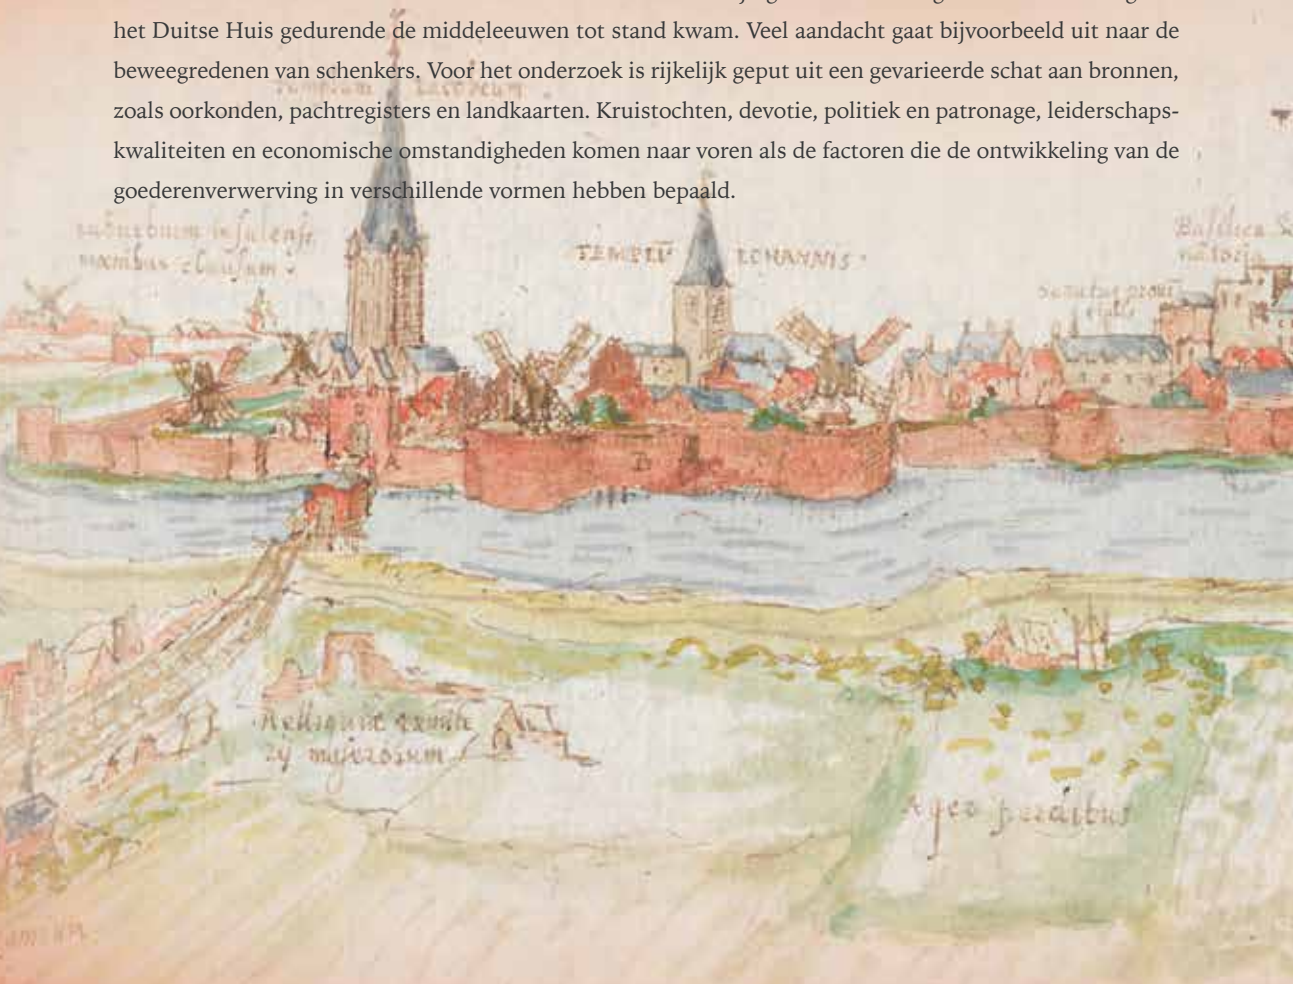 het Duitse Huis gedurende de middeleeuwen tot stand kwam. Veel aandacht gaat bijvoorbeeld uit naar de
beweegredenen van schenkers. Voor het onderzoek is rijkelijk geput uit een gevarieerde schat aan bronnen,
zoals oorkonden, pachtregisters en landkaarten. Kruistochten, devotie, politiek en patronage, leiderschaps-
kwaliteiten en economische omstandigheden komen naar voren als de factoren die de ontwikkeling van de
goederenverwerving in verschillende vormen hebben bepaald.
suburbium insulense
TEMPLŪ IOHANNIS
A
B